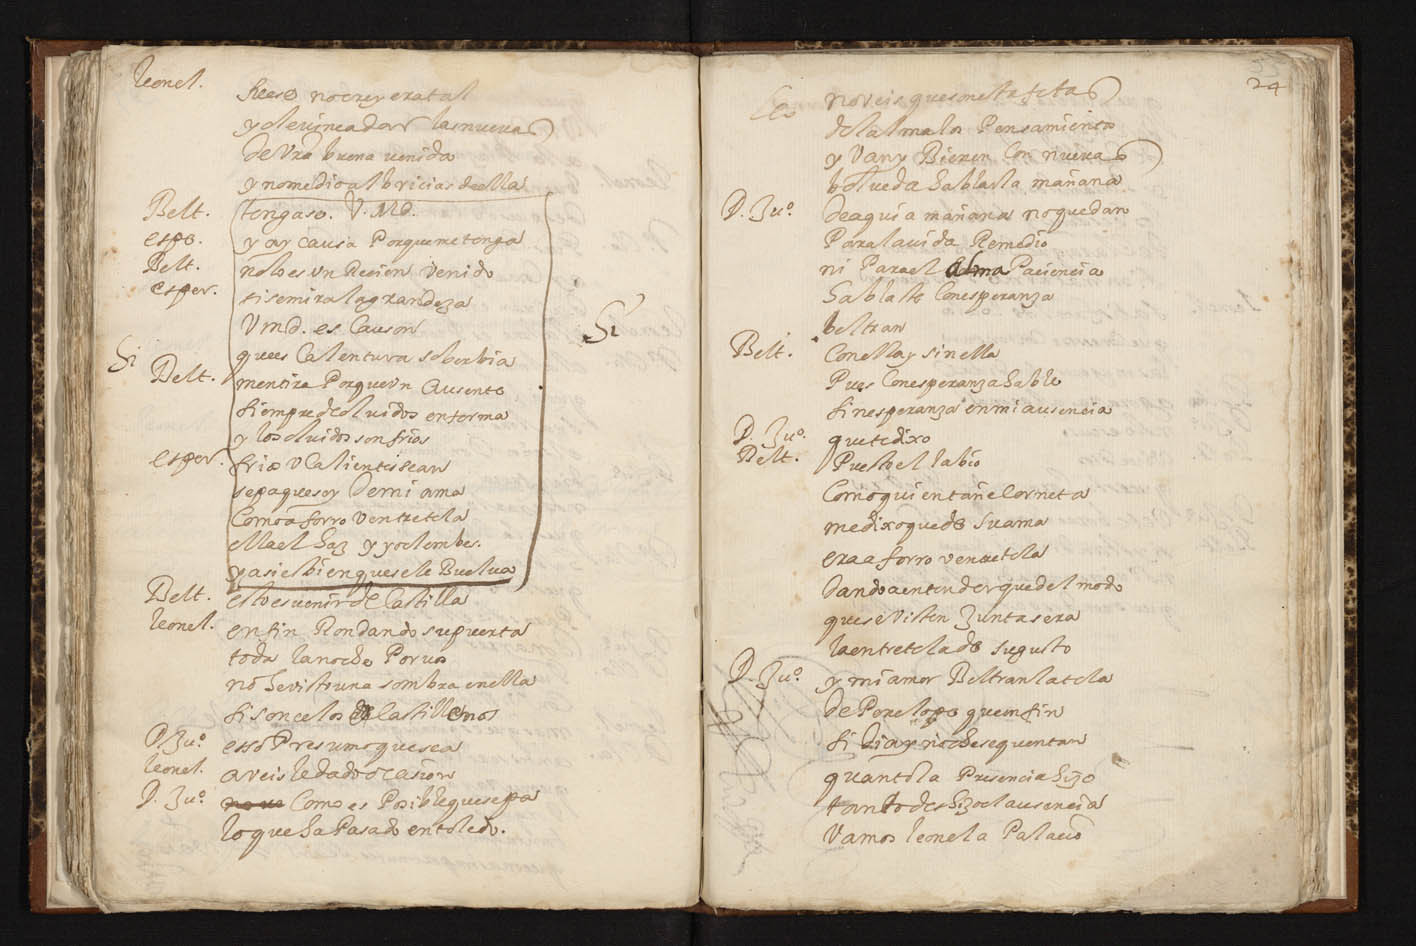 leonel. fueso no creyera tal
y el enuiador las nueuas
de Vra buena uenida
y nomedioalbricias deella
Belt. tengaso. V. Md.
espe. y ay causa Porquemetenga
Belt. nolo es Vn Recien Venido
esper. si semiralagrandeza
Vmd. es Causon
quees Calentura soberbia
Si
Belt. mentira PorqueVn Ausente
siempredeoluidos enferma
y losoluidos son frios
esper. frios v Calientes sean
sepaquesoy Demi ama
Comoaforro Ventretela
ellael haz y yoelembes.
yasielbienquesele Buelua
Si
Belt. estoesuenir de Castilla
leonel. enfin Rondando supuerta
toda lanoche Porver
nohevistouna sombra enella
sisoncelos de Castillanos
D. Juº. esso Presumoquesea
leonel. aveisledadoocasion
D. Juº. Como es Posiblequesepa
loqueha Pasado entoledo.
24
leo noveis quesonestafetas
delalmalos Pensamientos
y Van y Bienen Con nueuas
bolueda hablarla mañana
D. Juº. deaqui a mañana noquedan
Paralauida Remedio
ni Parael alma Paciencia
hablaste Conesperanza
beltran
Belt. Conella y sinella
Pues Conesperanzahable
sinesperanza enmiausencia
D. Juº. quetedixo
Belt. Puestoel labio
Comoquientañe Corneta
medixoquede suama
eraaforro ventretela
dandoaentenderquedelmodo
quese Visten Juntasera
laentretelade sugusto
D. Juº. y miamor Beltranlatela
de Penelope queenfin
si Diasynochesequentan
quantola Presenciahizo
tantodeshizolausencia
Vamos leonela Palacio